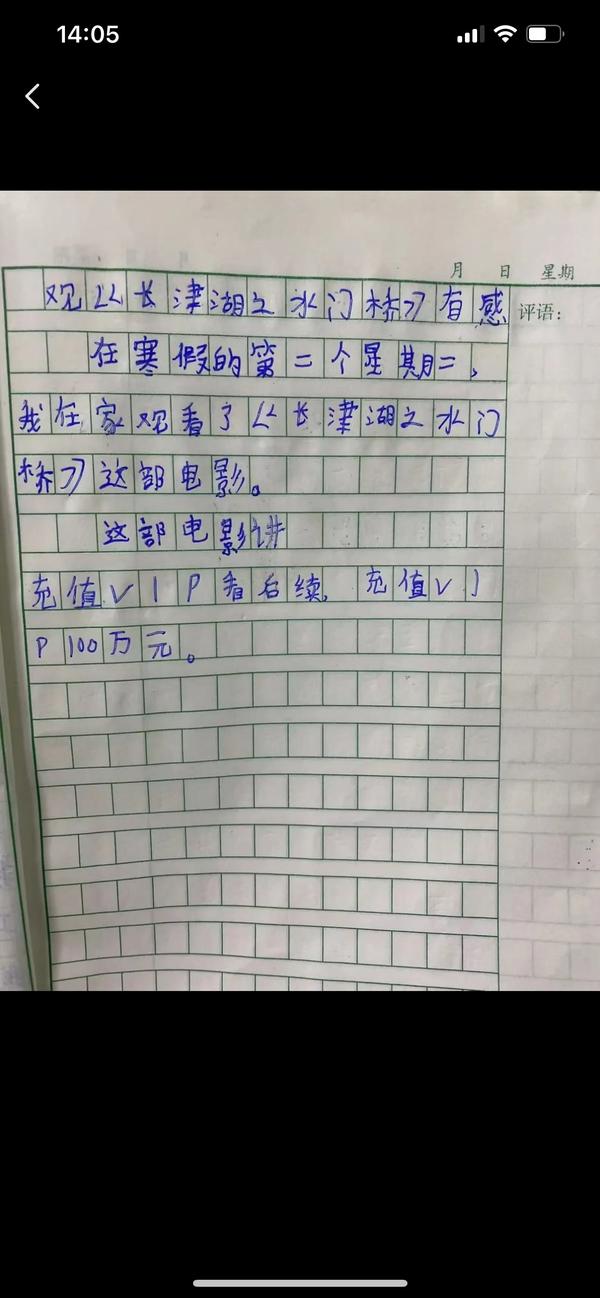 14:05
月 日 星期
观《长津湖之水门桥》有感
评语：
在寒假的第二个星期二，
我在家观看了《长津湖之水门
桥》这部电影。
这部电影讲
充值VIP看后续，充值VI
P100万元。